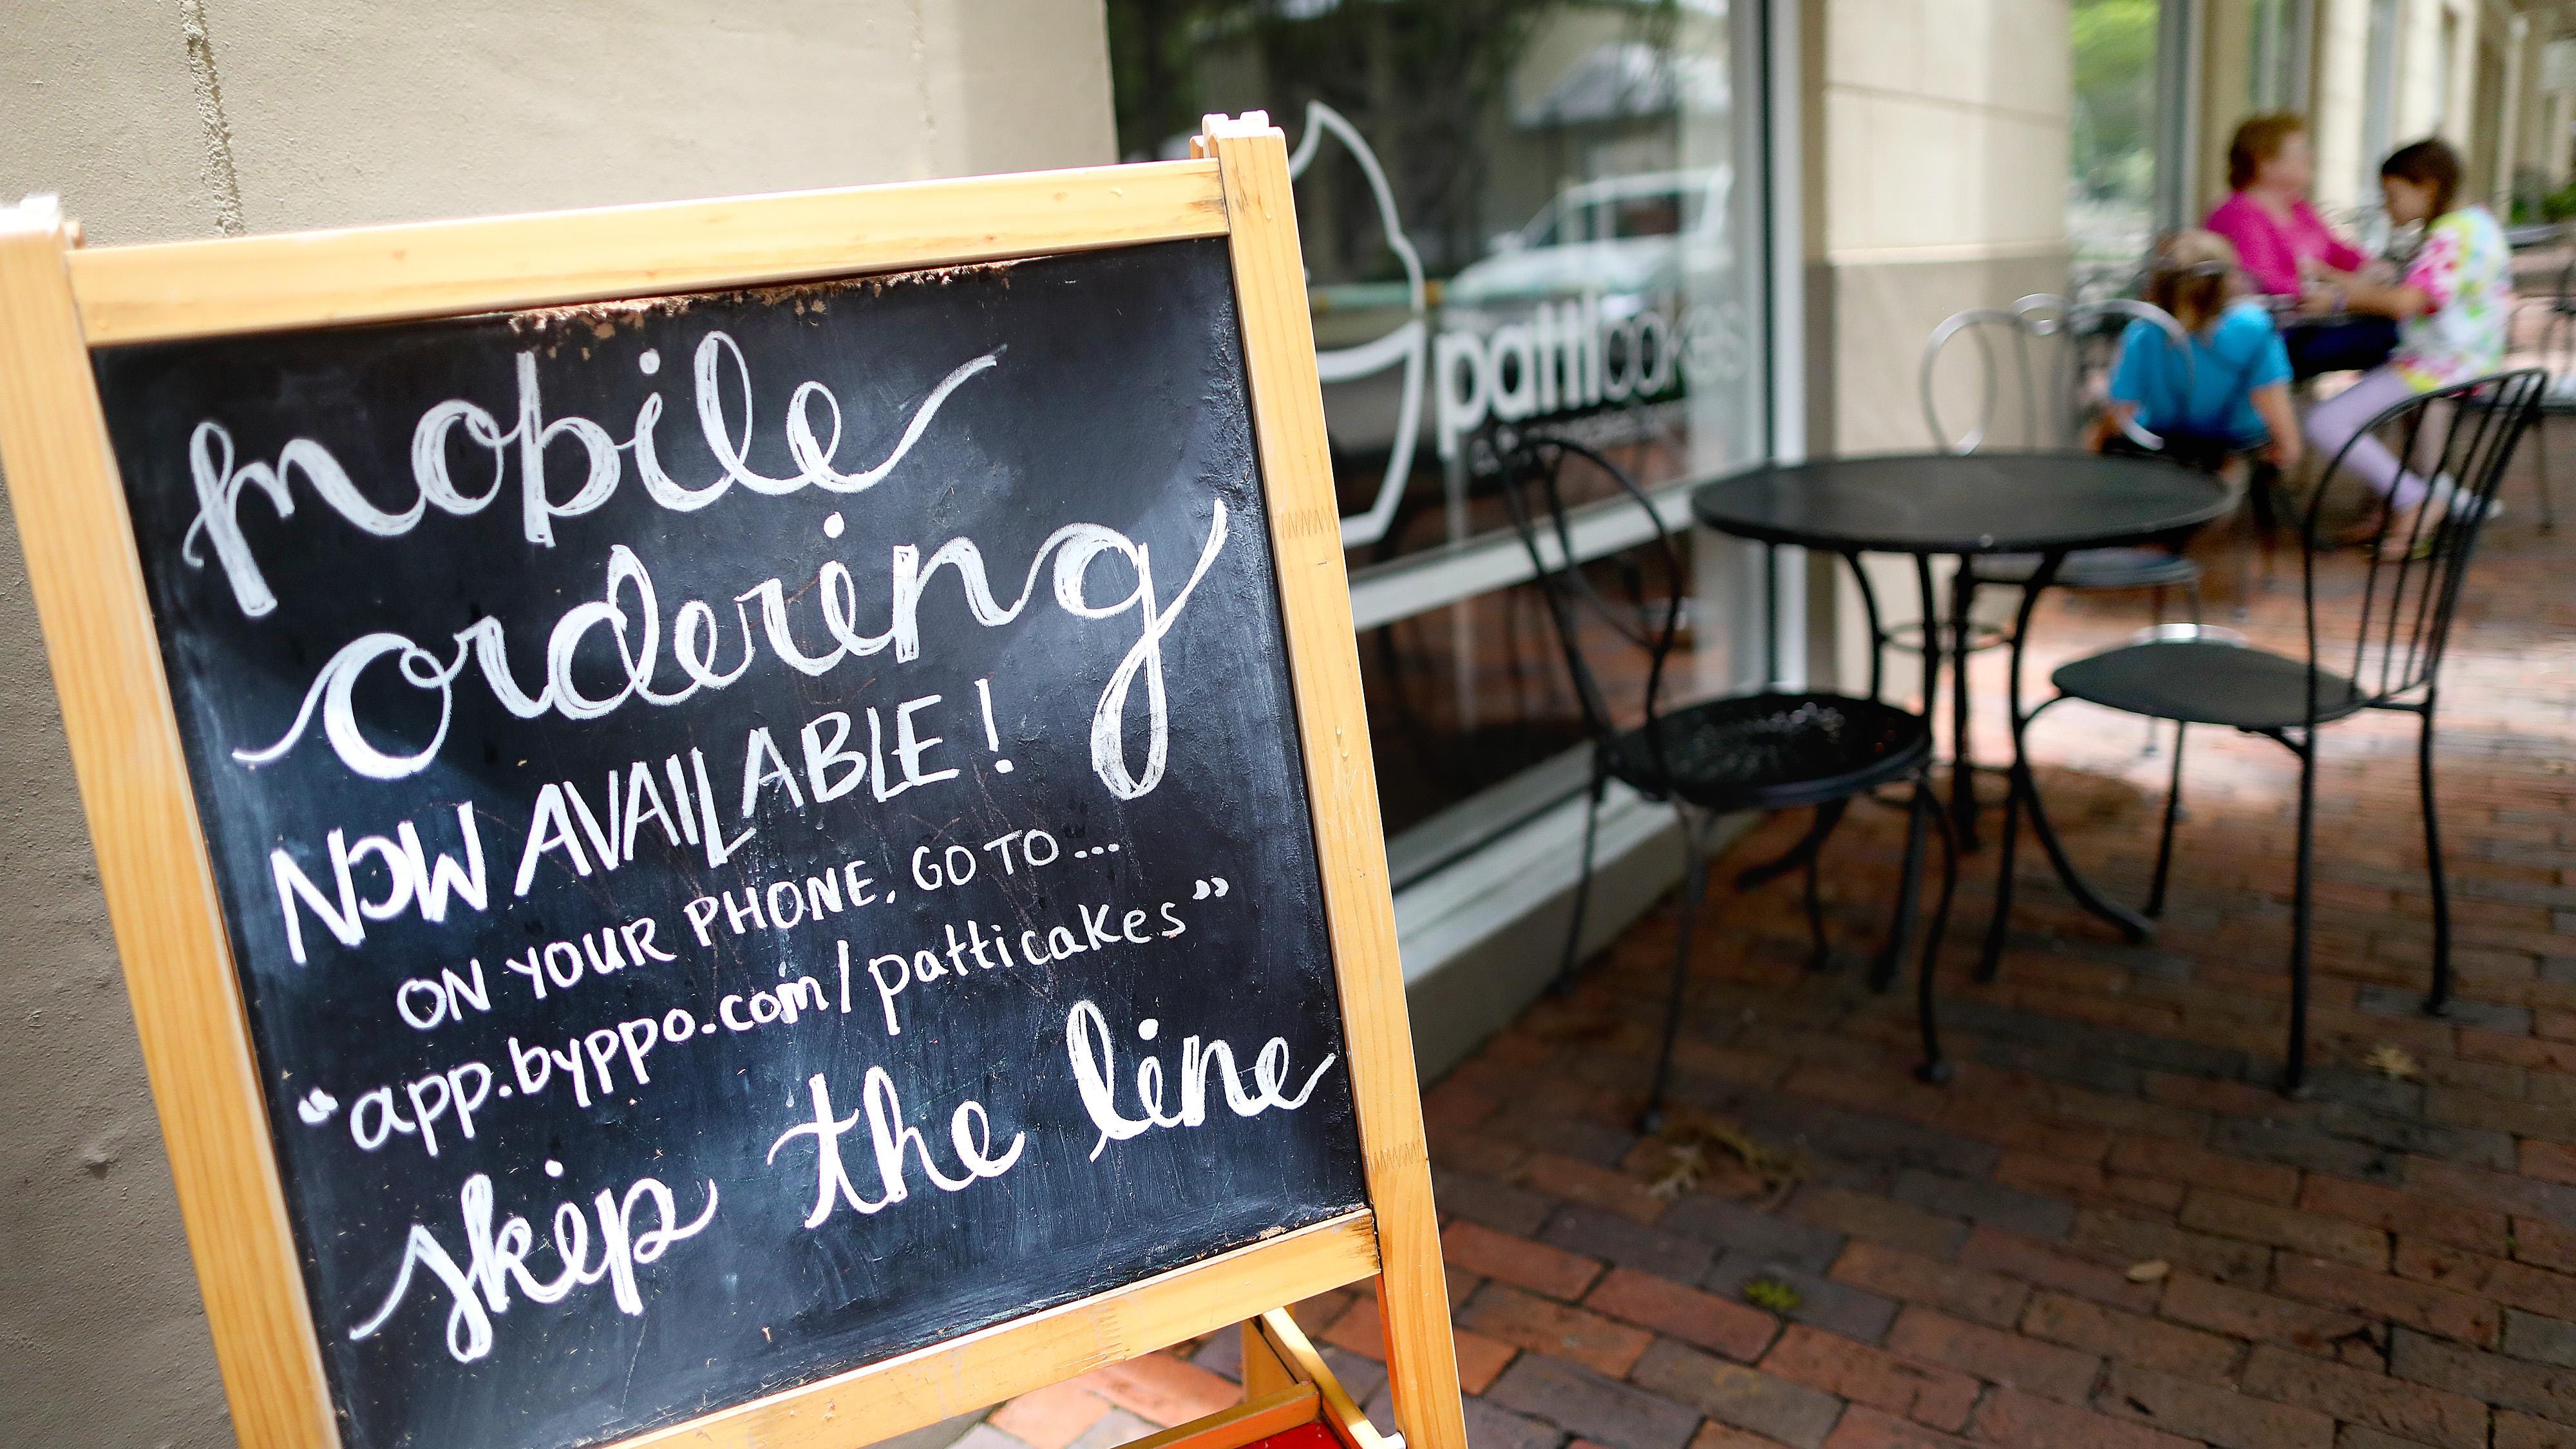 mobile
ordering
NOW AVAILABLE!
ON YOUR PHONE, GO TO...
“app.byppo.com/patticakes”
skip the line
patticakes